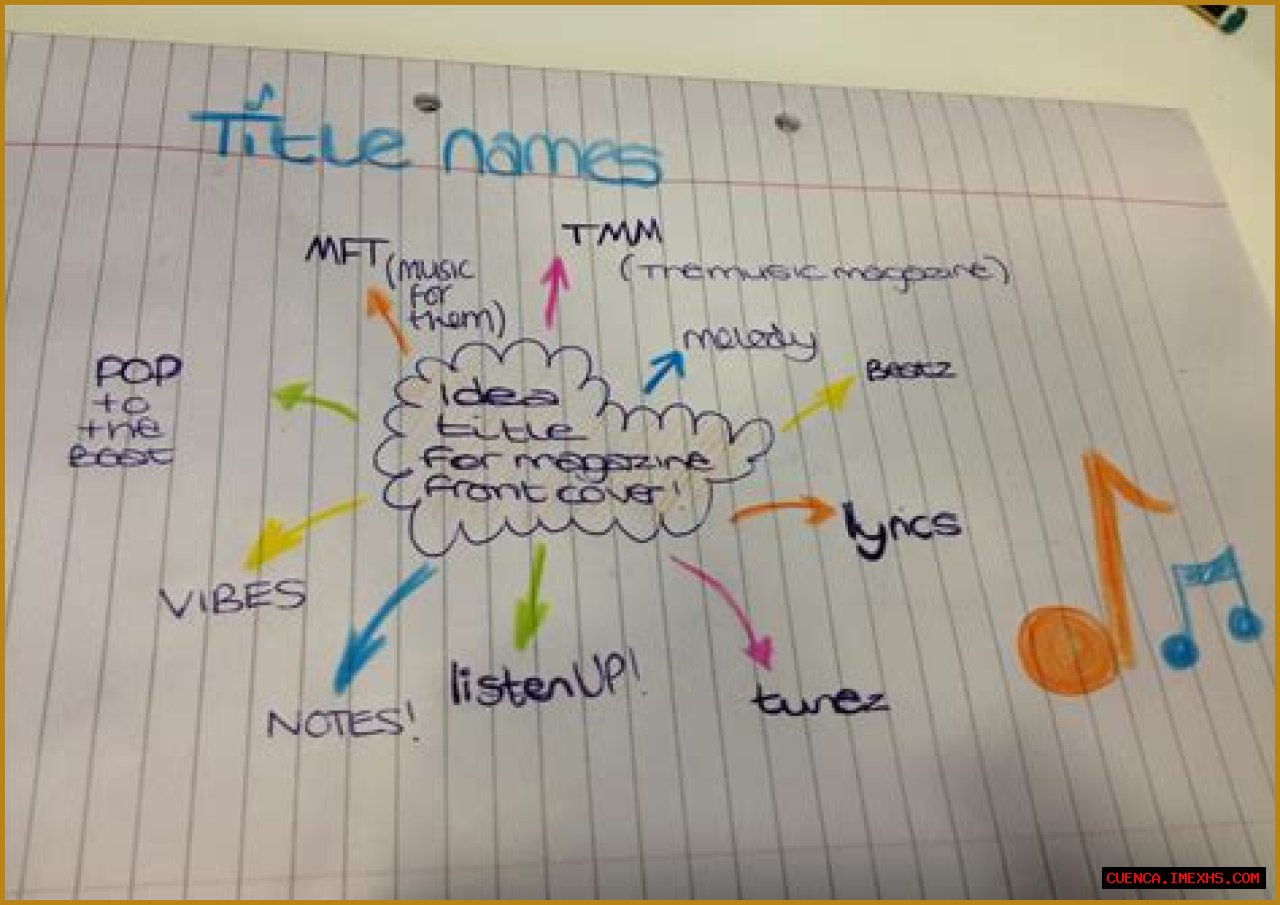 Title names
MFT (music
for
them)
TMM
(The music magazine)
melody
Beatz
POP
to
the
Beat
Idea
title
for magazine
front cover!
lyrics
VIBES
NOTES!
listenUP!
tunez
CUENCA.IMEXHS.COM